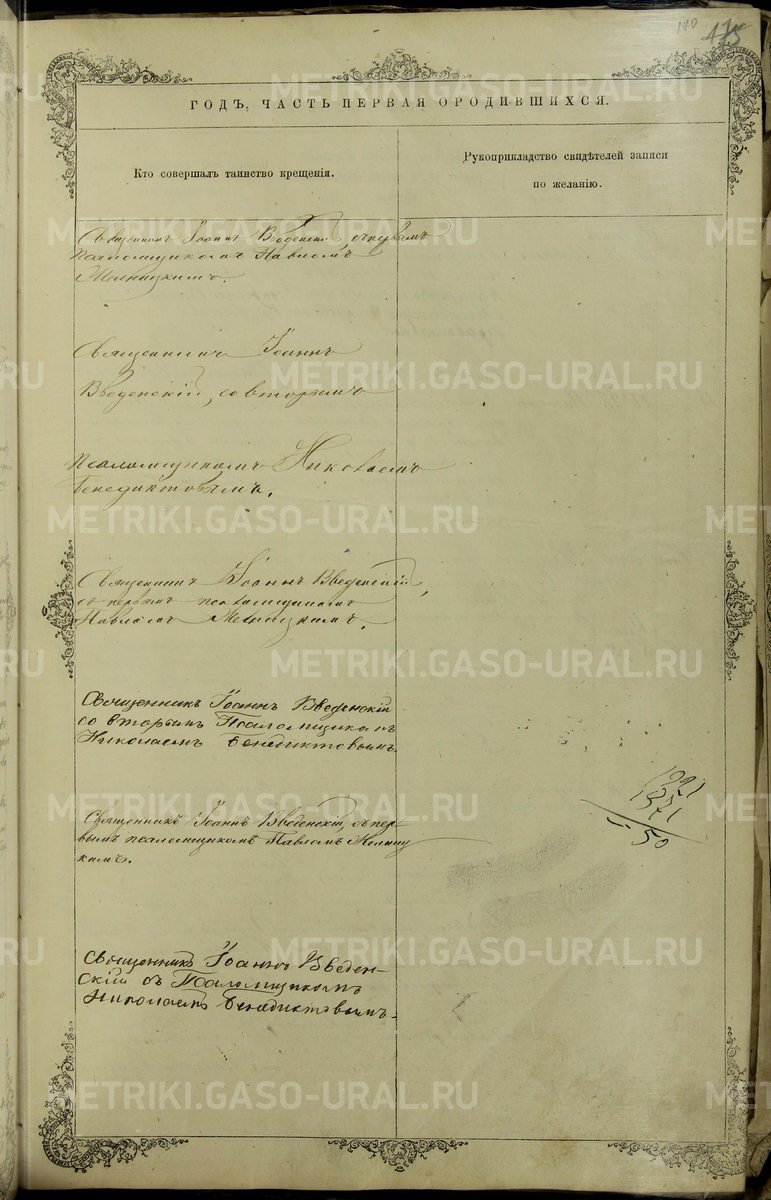 110
475
ГОДЪ, ЧАСТЬ ПЕРВАЯ О РОДИВШИХСЯ.
Кто совершалъ таинство крещенія.
Рукоприкладство свидѣтелей записи
по желанію.
Священникъ Іоаннъ Введенскій, съ первымъ
псаломщикомъ Павломъ
Священникъ Іоаннъ
Введенскій, со вторымъ
псаломщикомъ Николаемъ
Бенедиктовымъ.
Священникъ Іоаннъ Введенскій,
съ первымъ псаломщикомъ
Павломъ
Священникъ Іоаннъ Введенскій
со вторымъ Псаломщикомъ
Николаемъ Бенедиктовымъ.
Священникъ Іоаннъ Введенскій, съ пер-
вымъ псаломщикомъ Павломъ
кимъ.
Священникъ Іоаннъ Введен-
скій съ Псаломщикомъ
Николаемъ Бенедиктовымъ.
50
METRIKI.GASO-URAL.RU